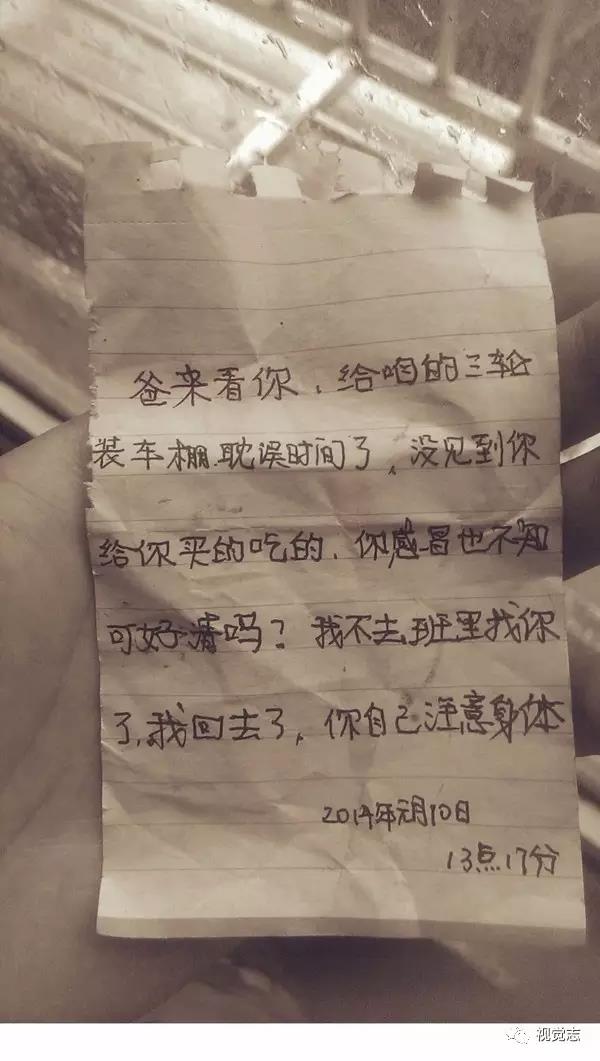 爸来看你，给咱的三轮
装车棚.耽误时间了，没见到你
给你买的吃的、你感冒也不知
可好清吗？我不去班里找你
了,我回去了，你自己注意身体
2014年元月10日
13点17分
视觉志